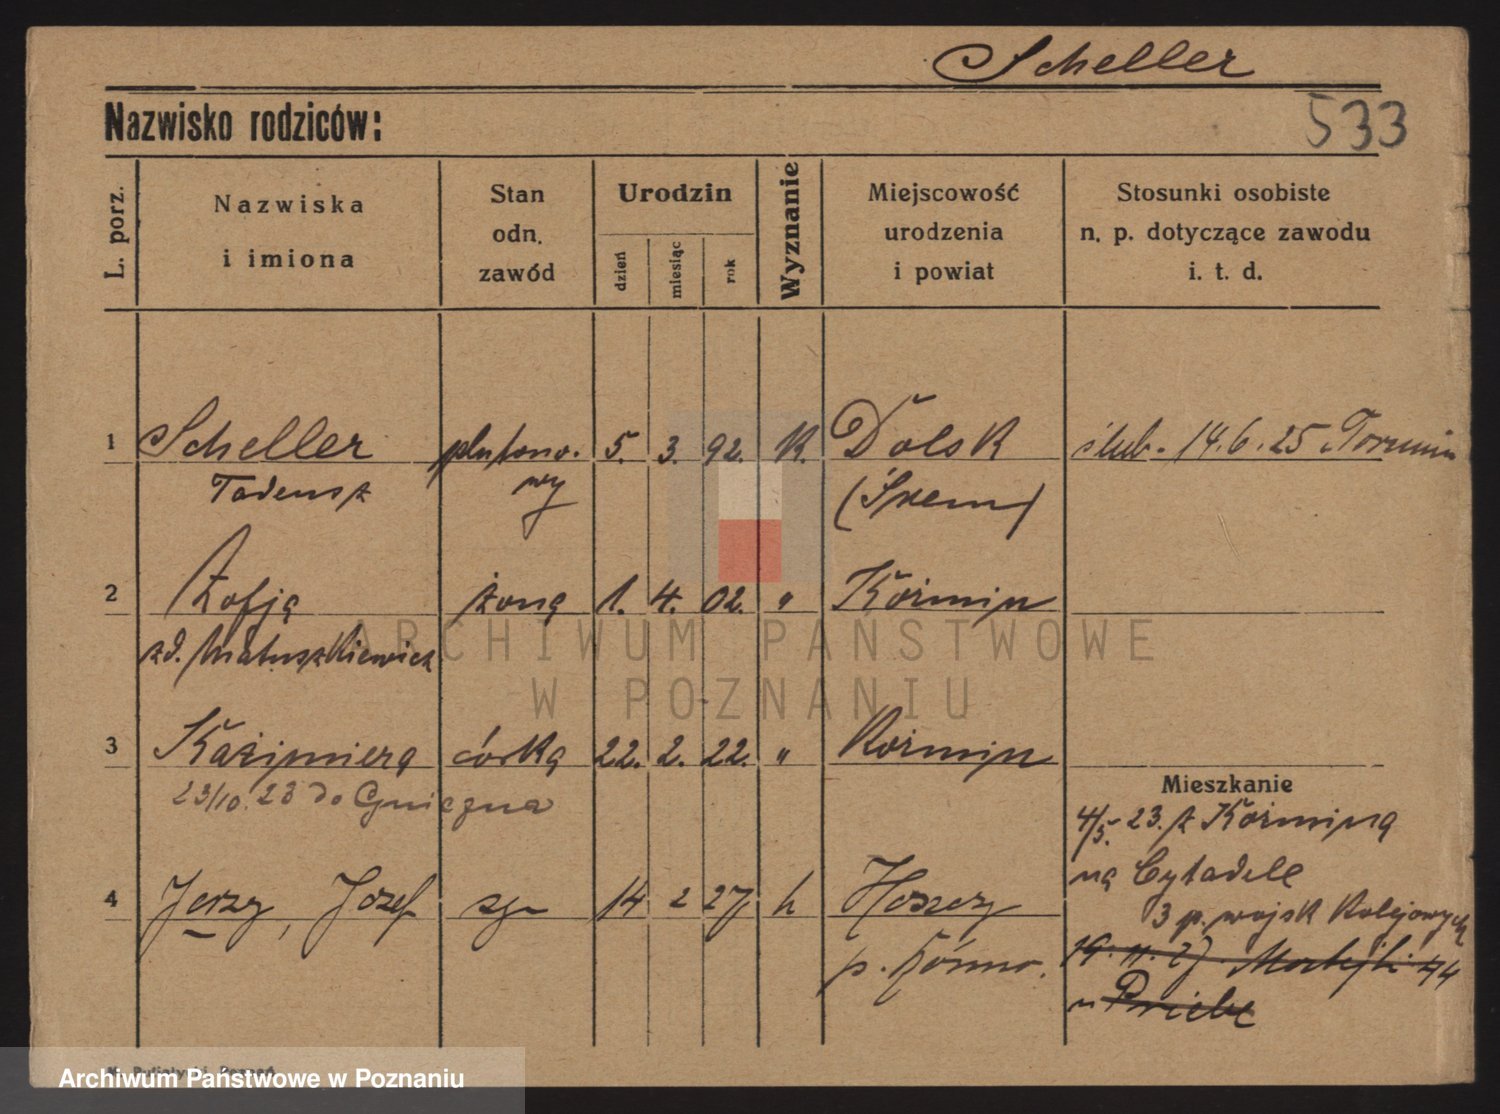 Scheller
Nazwisko rodziców:
533
L. porz.
Nazwiska
i imiona
Stan
odn.
zawód
Urodzin
dzień
miesiąc
rok
Wyznanie
Miejscowość
urodzenia
i powiat
Stosunki osobiste
n. p. dotyczące zawodu
i. t. d.
1 Scheller plutono- 5. 3. 92. K. Dolsk ślub. 14.6.25 Toruniu
Tadeusz wy (Śrem)
2 Zofja żona 1. 4. 02. " Koźmin
zd. Matuszkiewicz
ARCHIWUM PAŃSTWOWE
W POZNANIU
3 Kazimiera córka 22. 2. 22. " Koźmin
23/10.23 do Gniezna
Mieszkanie
4/5. 23. z Koźmina
na Cytadele
3 p. wojsk Kolejowych
4 Jerzy, Józef syn 14 2 27 k
p.
19.11.27. 44
u
Poznań
Archiwum Państwowe w Poznaniu